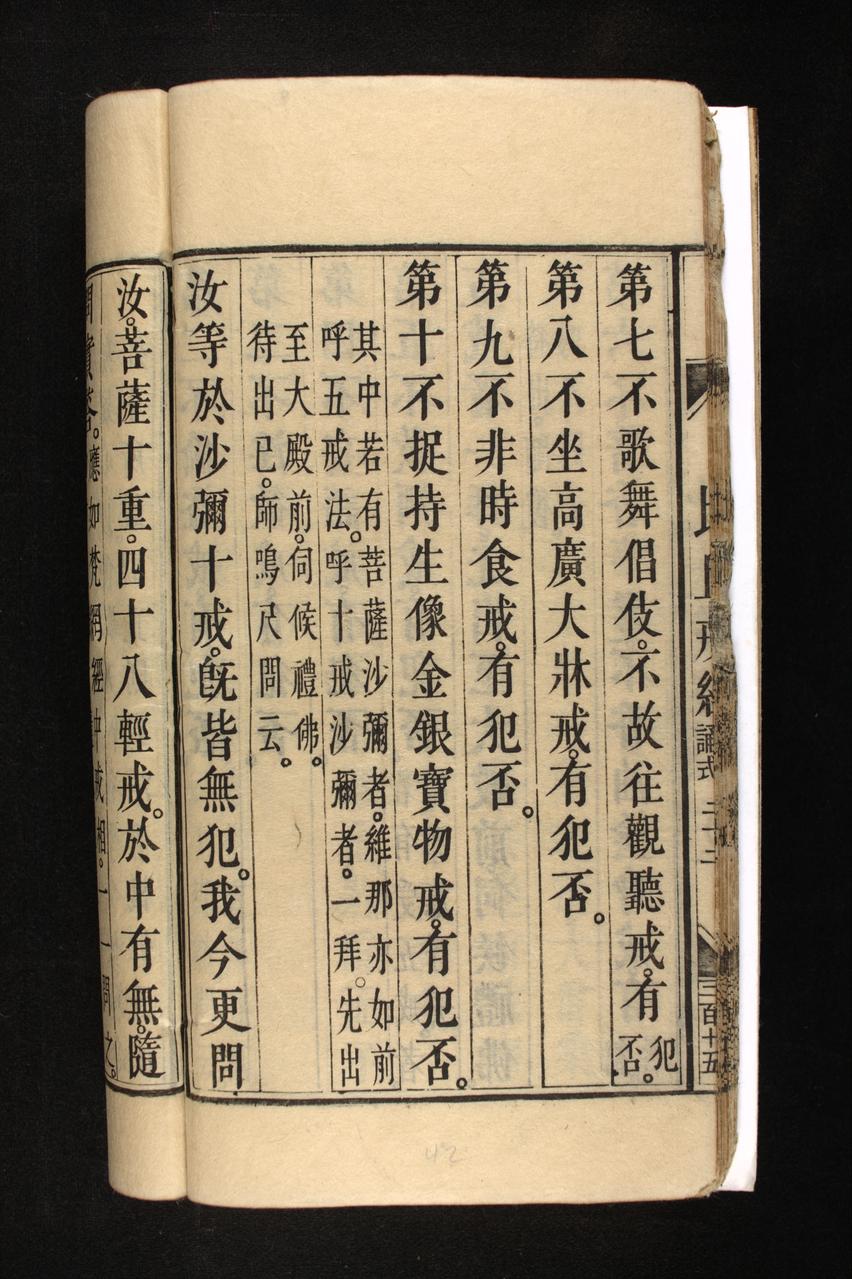 第七不歌舞倡伎。不故往觀聽戒。有犯否。
第八不坐高廣大牀戒。有犯否。
第九不非時食戒。有犯否。
第十不捉持生像金銀寶物戒。有犯否。
其中若有菩薩沙彌者。維那亦如前
呼五戒法。呼十戒沙彌者。一拜。先出
至大殿前。伺候禮佛。
待出已。師鳴尺問云。
汝等於沙彌十戒。旣皆無犯。我今更問
汝。菩薩十重。四十八輕戒。於中有無。隨
問實答。應如梵網經中戒相。一一問之。
戒經
誦式
二十二
三百十五
42